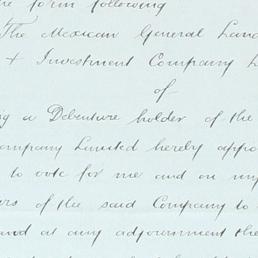 the form following
The Mexican General Land
+ Investment Company L
of
g a Debenture holder of the
ompany Limited hereby appo
to vote for me and on my
rs of the said Company to
and at any adjournment the